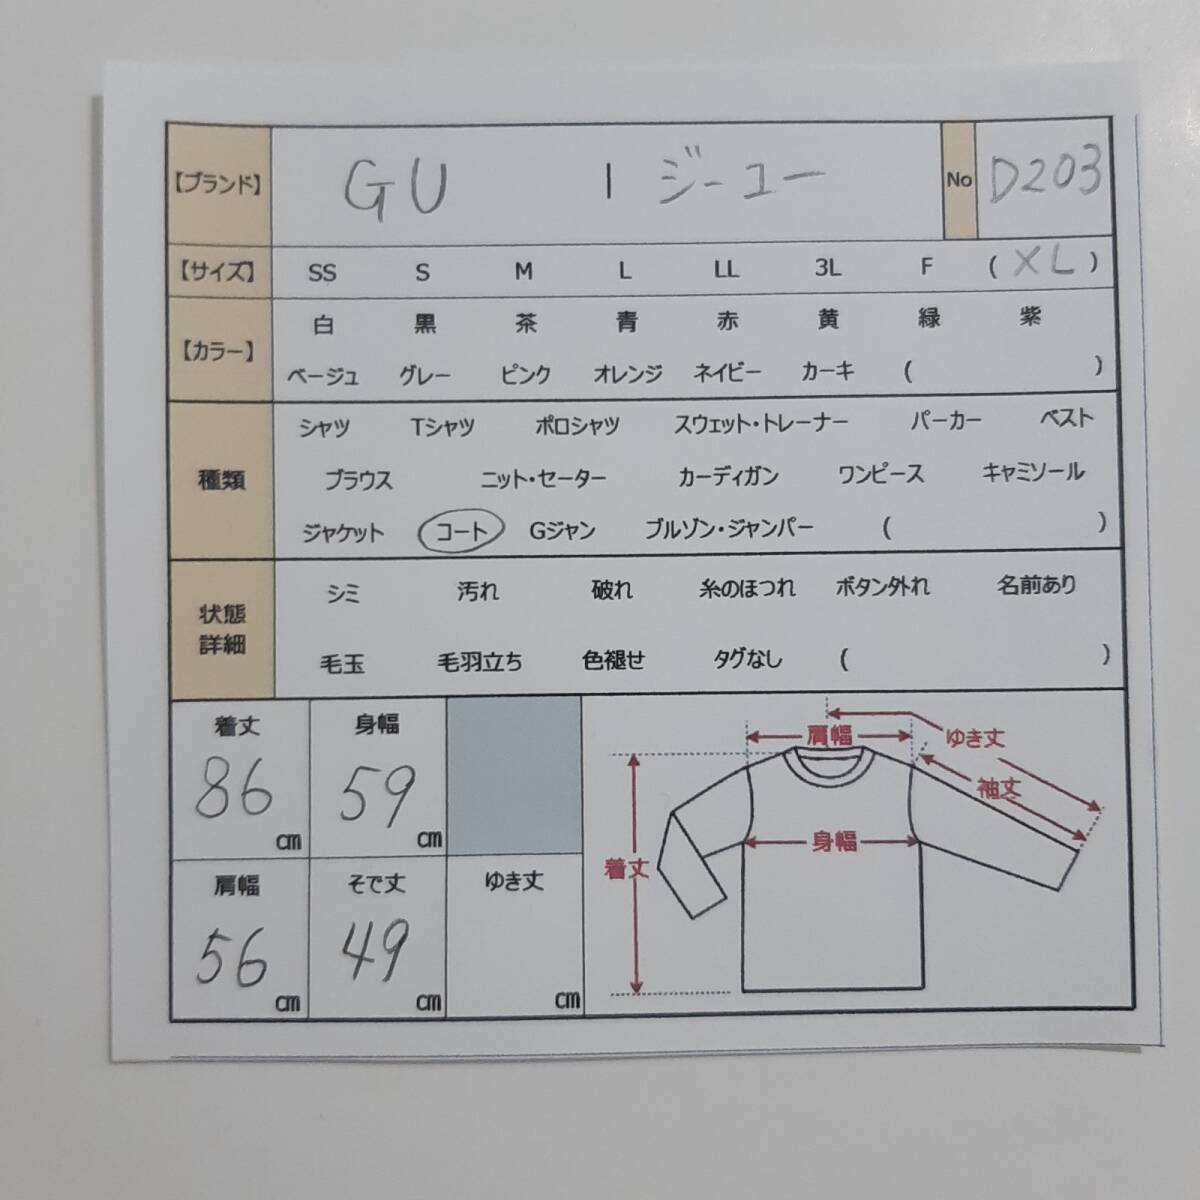 【ブランド】 GU | ジーユー No D203
【サイズ】 SS S M L LL 3L F ( XL )
【カラー】
白 黒 茶 青 赤 黄 緑 紫
ベージュ グレー ピンク オレンジ ネイビー カーキ ( )
種類
シャツ Tシャツ ポロシャツ スウェット・トレーナー パーカー ベスト
ブラウス ニット・セーター カーディガン ワンピース キャミソール
ジャケット コート Gジャン ブルゾン・ジャンパー ( )
状態
詳細
シミ 汚れ 破れ 糸のほつれ ボタン外れ 名前あり
毛玉 毛羽立ち 色褪せ タグなし ( )
着丈 身幅
86 cm 59 cm
肩幅 そで丈 ゆき丈
56 cm 49 cm cm
肩幅 ゆき丈
袖丈
身幅
着丈